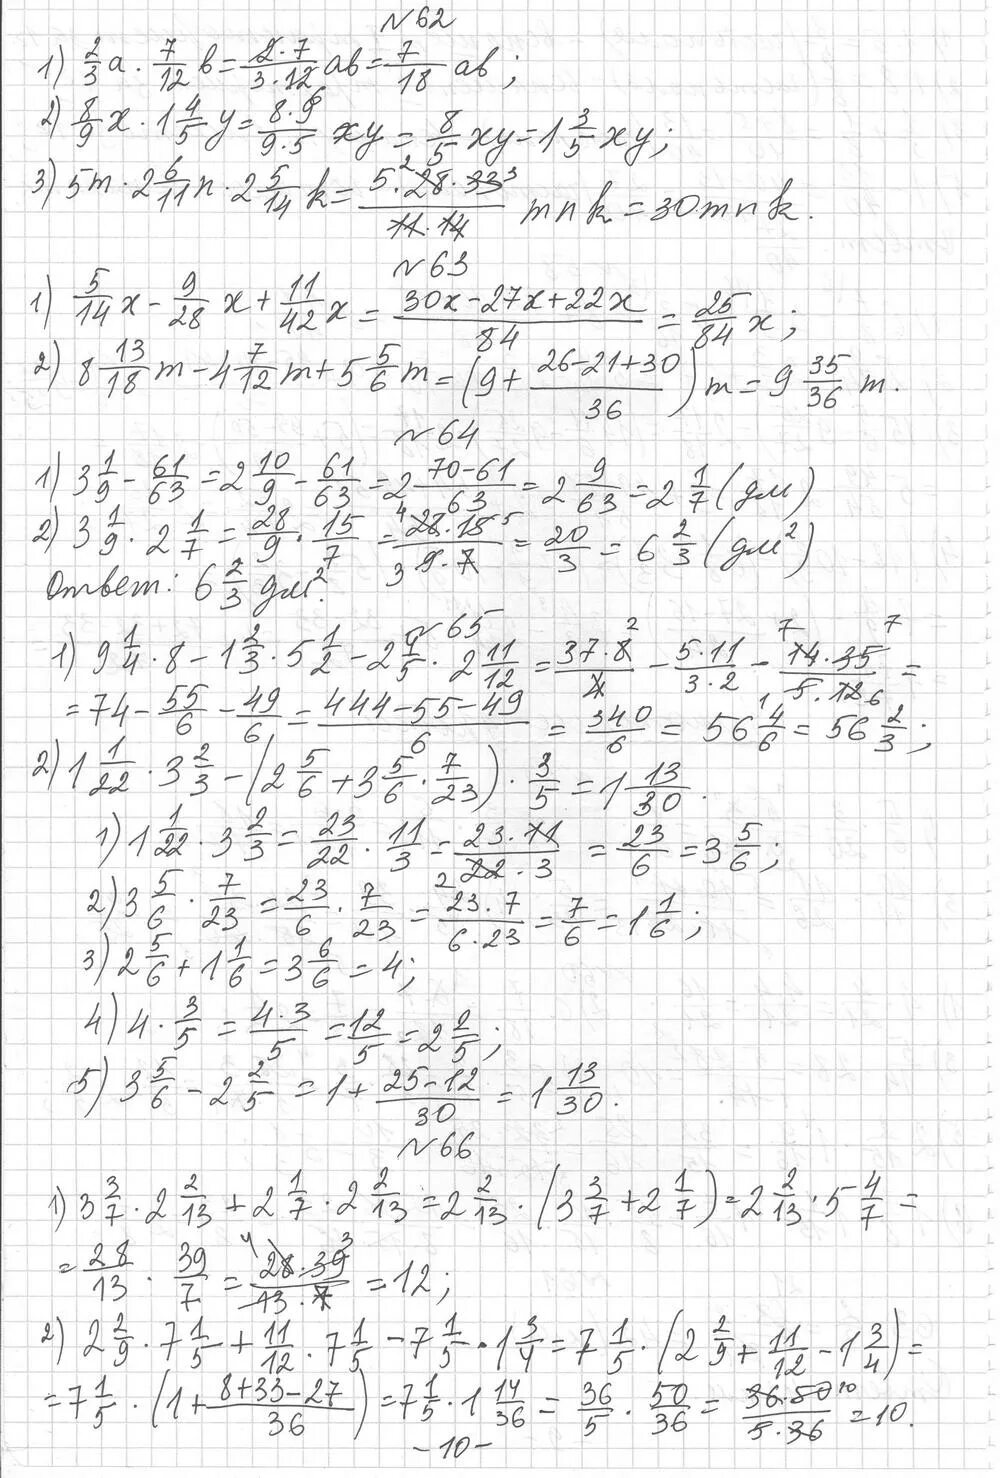 №62
1) 2/3 a · 7/12 b = 2·7/3·12 ab = 7/18 ab;
2) 8/9 x · 1 4/5 y = 8·9/9·5 xy = 8/5 xy = 1 3/5 xy;
3) 5m · 2 6/11 n · 2 5/14 k = 5·28·33/11·14 mnk = 30mnk.
№63
1) 5/14 x - 9/28 x + 11/42 x = 30x-27x+22x/84 = 25/84 x;
2) 8 13/18 m - 4 7/12 m + 5 5/6 m = (9 + 26-21+30/36) m = 9 35/36 m.
№64
1) 3 1/9 - 61/63 = 2 10/9 - 61/63 = 2 70-61/63 = 2 9/63 = 2 1/7 (дм)
2) 3 1/9 · 2 1/7 = 28/9 · 15/7 = 28·15/9·7 = 20/3 = 6 2/3 (дм²)
Ответ: 6 2/3 дм².
№65
1) 9 1/4 · 8 - 1 2/3 · 5 1/2 - 2 4/5 · 2 11/12 = 37·8/4 - 5·11/3·2 - 14·35/5·12 =
= 74 - 55/6 - 49/6 = 444-55-49/6 = 340/6 = 56 4/6 = 56 2/3;
2) 1 1/22 · 3 2/3 - (2 5/6 + 3 5/6 · 7/23) · 3/5 = 1 13/30.
1) 1 1/22 · 3 2/3 = 23/22 · 11/3 = 23·11/22·3 = 23/6 = 3 5/6;
2) 3 5/6 · 7/23 = 23/6 · 7/23 = 23·7/6·23 = 7/6 = 1 1/6;
3) 2 5/6 + 1 1/6 = 3 6/6 = 4;
4) 4 · 3/5 = 4·3/5 = 12/5 = 2 2/5;
5) 3 5/6 - 2 2/5 = 1 + 25-12/30 = 1 13/30.
№66
1) 3 3/7 · 2 2/13 + 2 1/7 · 2 2/13 = 2 2/13 · (3 3/7 + 2 1/7) = 2 2/13 · 5 4/7 =
= 28/13 · 39/7 = 28·39/13·7 = 12;
2) 2 2/9 · 7 1/5 + 11/12 · 7 1/5 - 7 1/5 · 1 3/4 = 7 1/5 · (2 2/9 + 11/12 - 1 3/4) =
= 7 1/5 · (1 + 8+33-27/36) = 7 1/5 · 1 14/36 = 36/5 · 50/36 = 36·50/5·36 = 10.
-10-